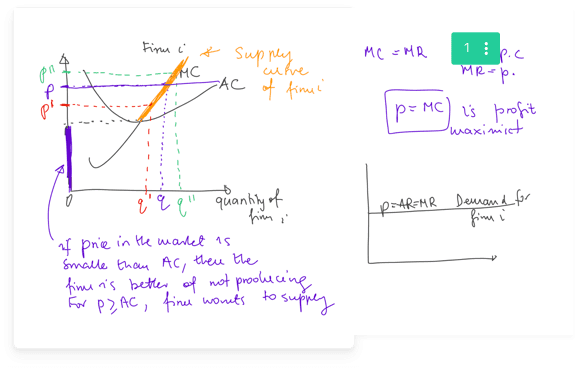 Firm i
supply
curve
of firm i
MC
AC
p"
p
p'
0
q'
q
q"
quantity of
firm i
if price in the market is
smaller than AC, then the
firm is better of not producing
For p ≥ AC, firm wants to supply
MC = MR
1
p.c
MR = p.
p = MC
is profit
maximist
p=AR=MR Demand for
firm i